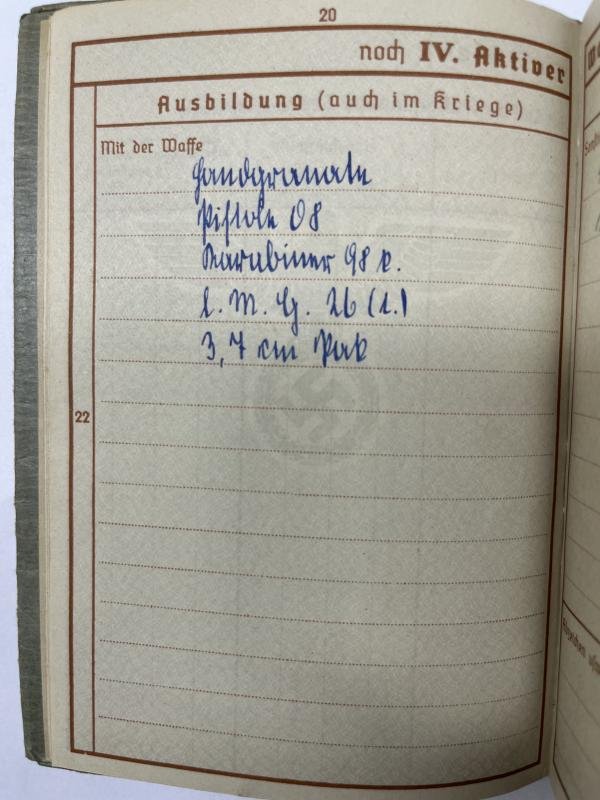 20
noch IV. Aktiver
Ausbildung (auch im Kriege)
Mit der Waffe
Handgranate
Pistole 08
Karabiner 98 k.
l. M. G. 26 (t.)
3,7 cm Pak
22